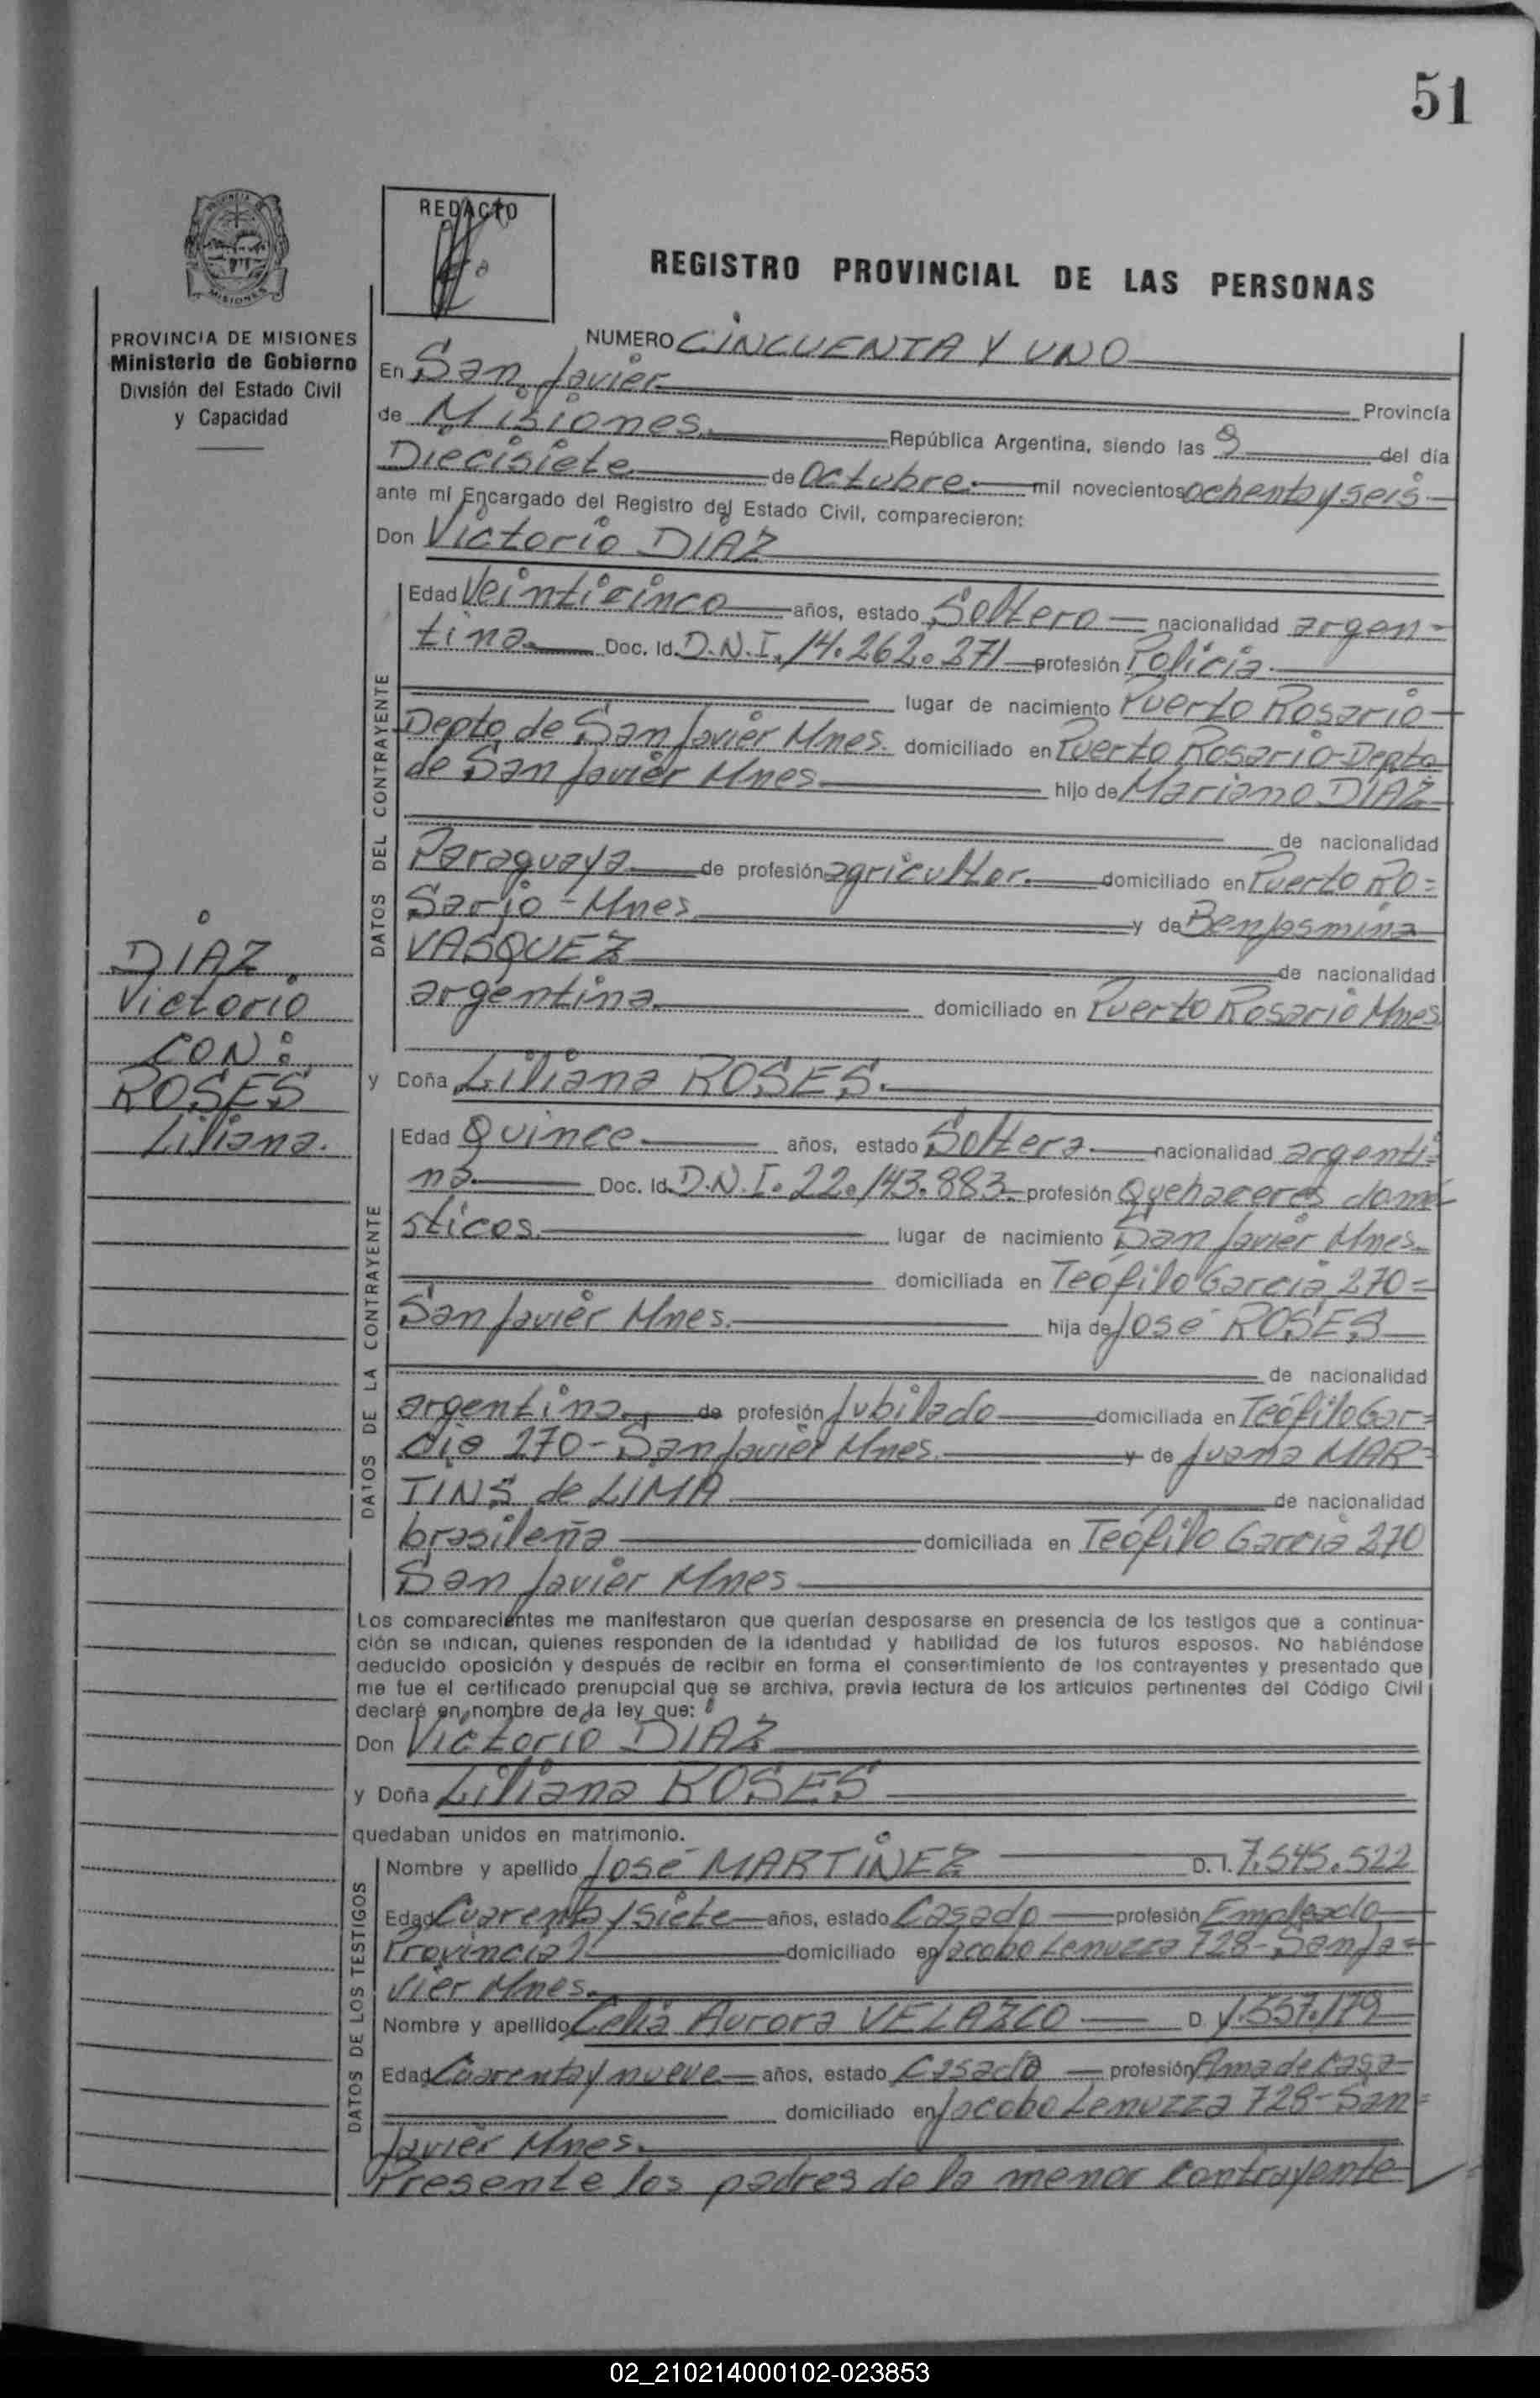 51
REDACTO
PROVINCIA DE MISIONES
Ministerio de Gobierno
División del Estado Civil
y Capacidad
REGISTRO PROVINCIAL DE LAS PERSONAS
NUMERO CINCUENTA Y UNO
En San Javier Provincia
de Misiones. República Argentina, siendo las 9 del día
Diecisiete de Octubre. mil novecientos ochenta y seis
ante mí Encargado del Registro del Estado Civil, comparecieron:
Don Victorio DIAZ
DATOS DEL CONTRAYENTE
Edad Veinticinco años, estado Soltero nacionalidad argen=
tina. Doc. Id. D.N.I. 14.262.271 profesión Policia.
lugar de nacimiento Puerto Rosario
Depto de San Javier Mnes. domiciliado en Puerto Rosario-Depto
de San Javier Mnes hijo de Mariano DIAZ
de nacionalidad
Paraguaya de profesión agricultor. domiciliado en Puerto Ro=
sario - Mnes y de Benjasmina
VASQUEZ de nacionalidad
argentina. domiciliado en Puerto Rosario Mnes
DIAZ.
Victorio
CON:
ROSES
Liliana.
y Doña Liliana ROSES.
DATOS DE LA CONTRAYENTE
Edad Quince años, estado Soltera. nacionalidad argenti=
na. Doc. Id. D.N.I. 22.143.883. profesión Quehaceres domé-
sticos. lugar de nacimiento San Javier Mnes.
domiciliada en Teófilo Garcia 270=
San Javier Mnes. hija de José ROSES
de nacionalidad
argentina, de profesión Jubilado domiciliada en Teófilo Gar=
cia 270-San Javier Mnes. y de Juana MAR=
TINS de LIMA de nacionalidad
brasileña domiciliada en Teófilo Garcia 270
San Javier Mnes.
Los comparecientes me manifestaron que querían desposarse en presencia de los testigos que a continua-
ción se indican, quienes responden de la identidad y habilidad de los futuros esposos. No habiéndose
deducido oposición y después de recibir en forma el consentimiento de los contrayentes y presentado que
me fue el certificado prenupcial que se archiva, previa lectura de los artículos pertinentes del Código Civil
declaré en nombre de la ley que:
Don Victorio DIAZ
y Doña Liliana ROSES
quedaban unidos en matrimonio.
DATOS DE LOS TESTIGOS
Nombre y apellido José MARTINEZ D. I. 7.545.522
Edad Cuarenta y siete años, estado Casado profesión Empleado
Provincial domiciliado en Jacobo Lenuzza 728-San Ja=
vier Mnes.
Nombre y apellido Celia Aurora VELAZCO D. 1.557.179
Edad Cuarenta y nueve años, estado Casada profesión Ama de Casa
domiciliado en Jacobo Lenuzza 728-San=
Javier Mnes.
Presente los padres de la menor contrayente
02_210214000102-023853